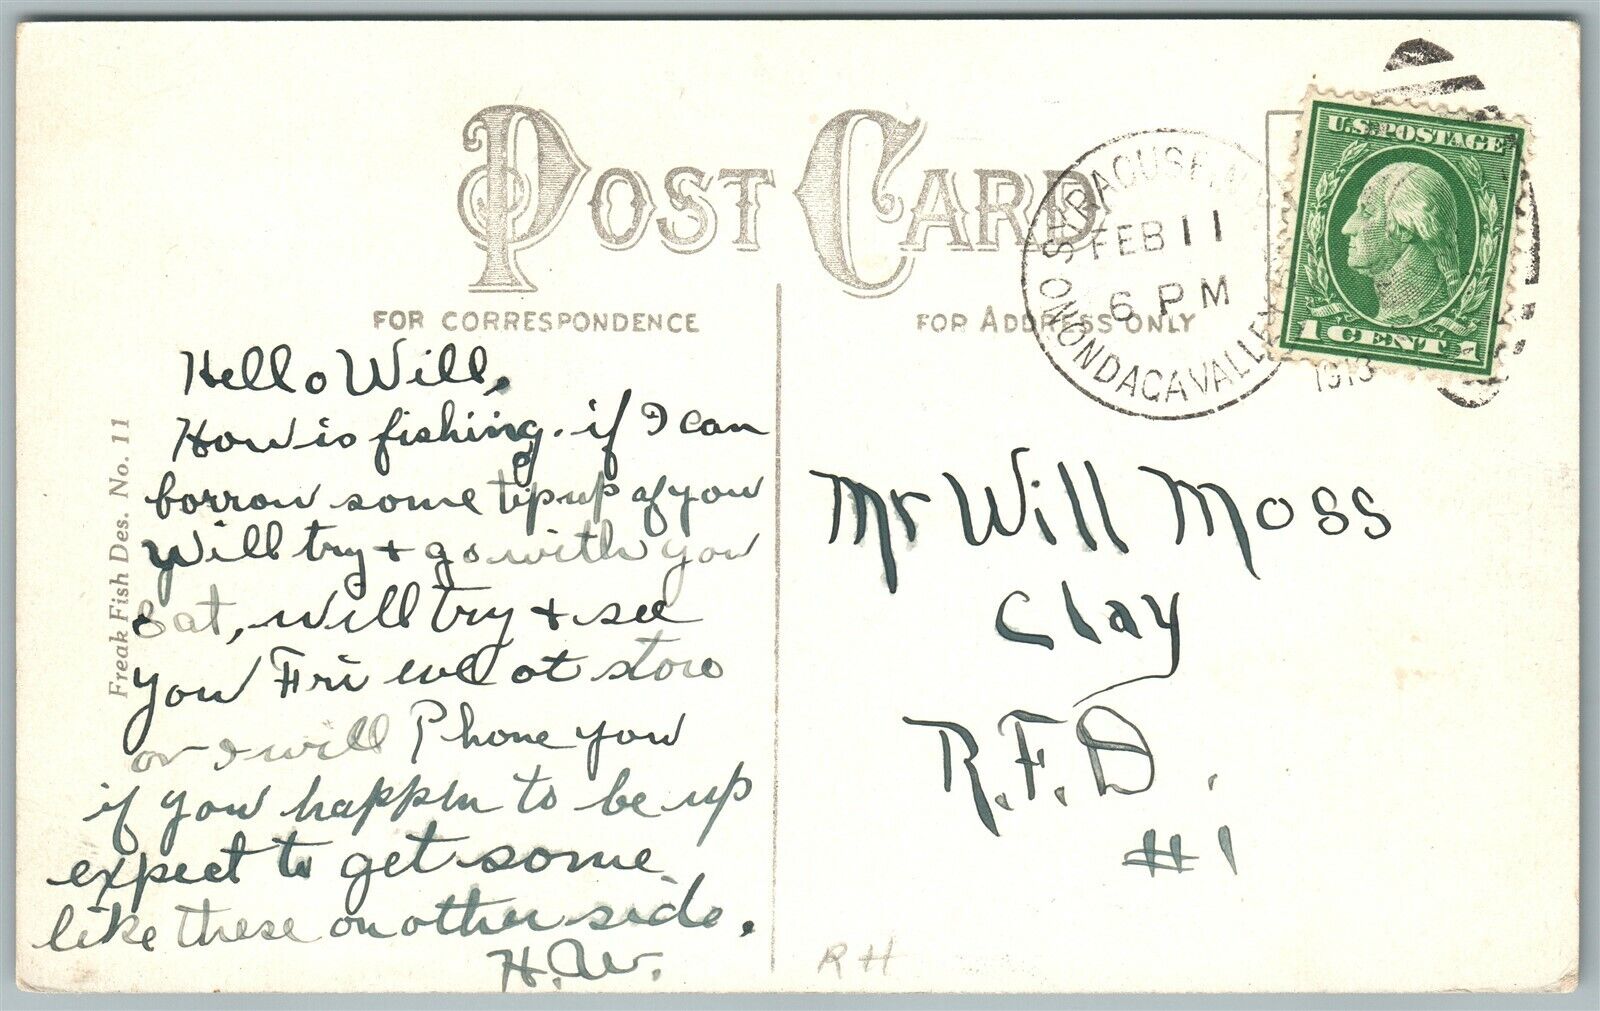 POST CARD
FOR CORRESPONDENCE
FOR ADDRESS ONLY
SYRACUSE, N.Y.
FEB 11
6 PM
ONONDAGA VALLEY
1913
U.S. POSTAGE
1 CENT 1
Freak Fish Des. No. 11
Hello Will,
How is fishing. if I can
borrow some tip up of you
Will try + go with you
Sat, will try + see
you Fri eve at store
or I will Phone you
if you happen to be up
expect to get some
like these on other side.
H.W.
Mr Will Moss
Clay
R.F.D.
#1
RH